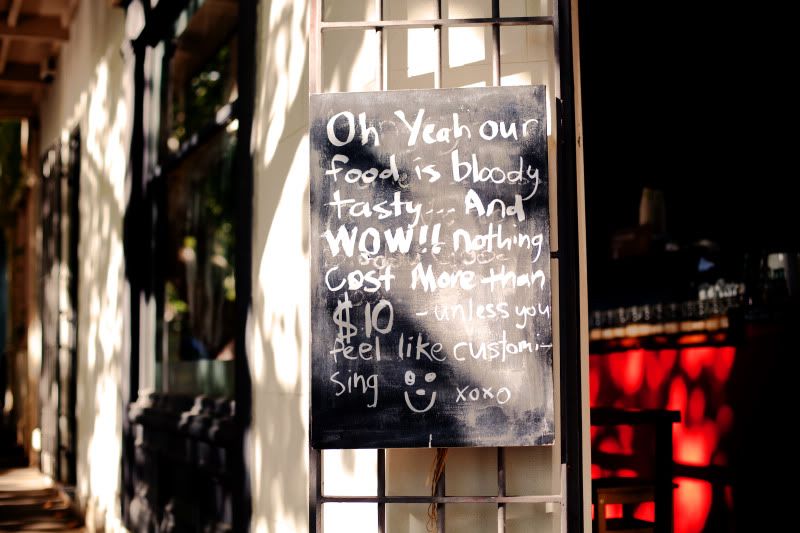 Oh Yeah our
food is bloody
tasty... And
WOW!! nothing
Cost More than
$10 - unless you
feel like customi-
sing xoxo